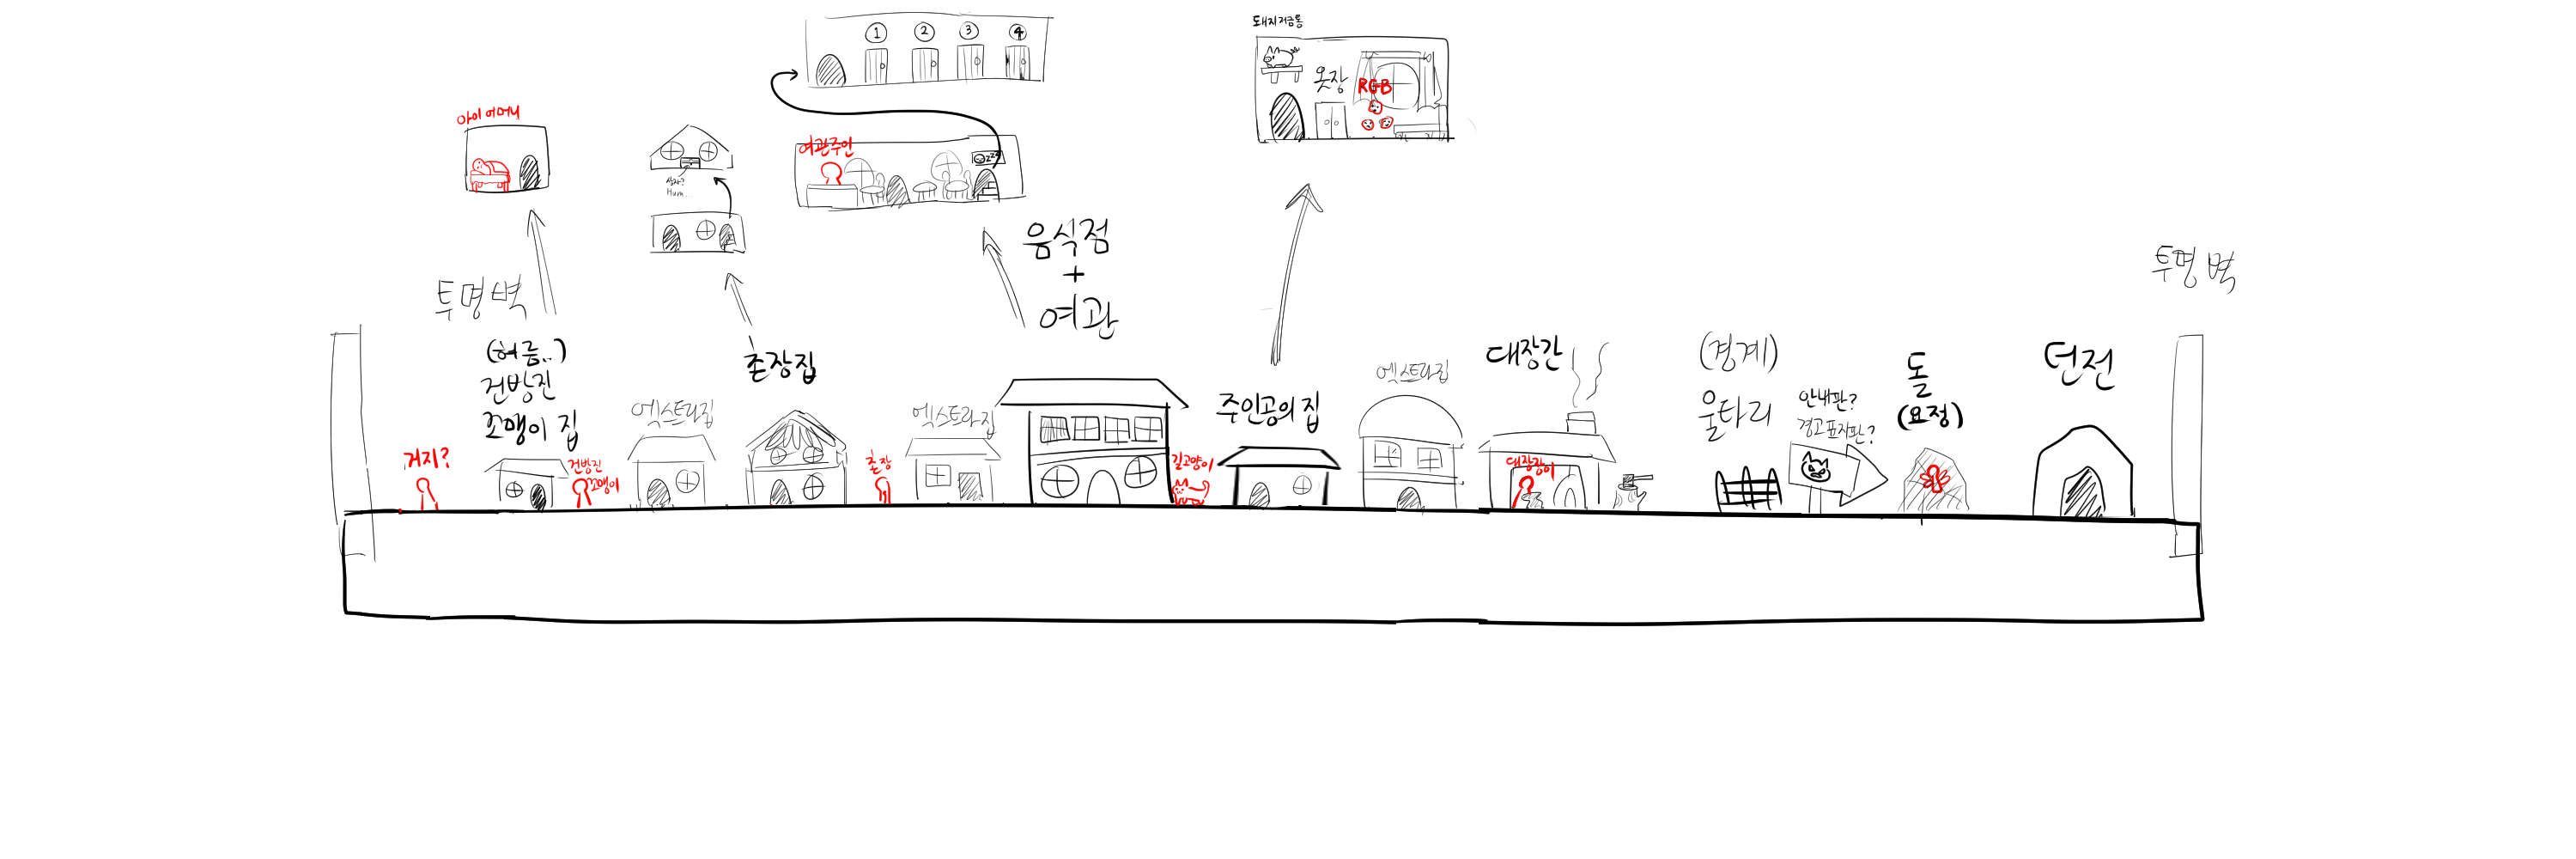 돼지저금통
1
2
3
4
옷장
RGB
아이 어머니
여관주인
zzz
상자?
Hum...
음식점
+
여관
투명벽
투명벽
(허름..)
건방진
꼬맹이 집
촌장집
엑스트라집
엑스트라집
주인공의 집
엑스트라집
대장간
(경계)
울타리
안내판?
경고표지판?
돌
(요정)
던전
거지?
건방진
꼬맹이
촌장
길고양이
대장장이